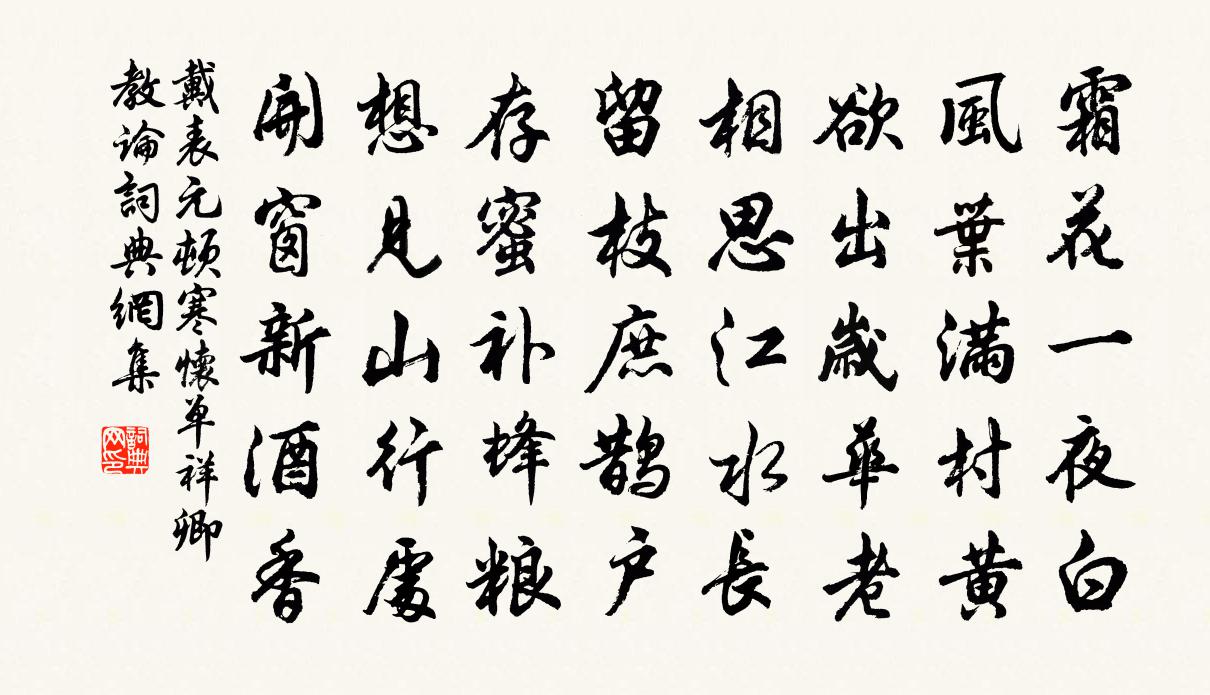 霜花一夜白
風葉滿村黄
欲出嵗華老
相思江水長
留枝庶鵲户
存蜜补蜂粮
想見山行處
開窗新酒香
戴表元頓寒懷单祥卿
教論詞典網集
詞典网印